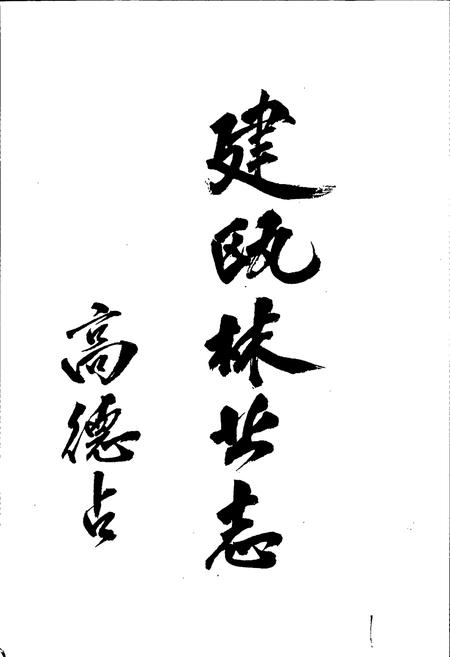 建瓯林业志
高德占